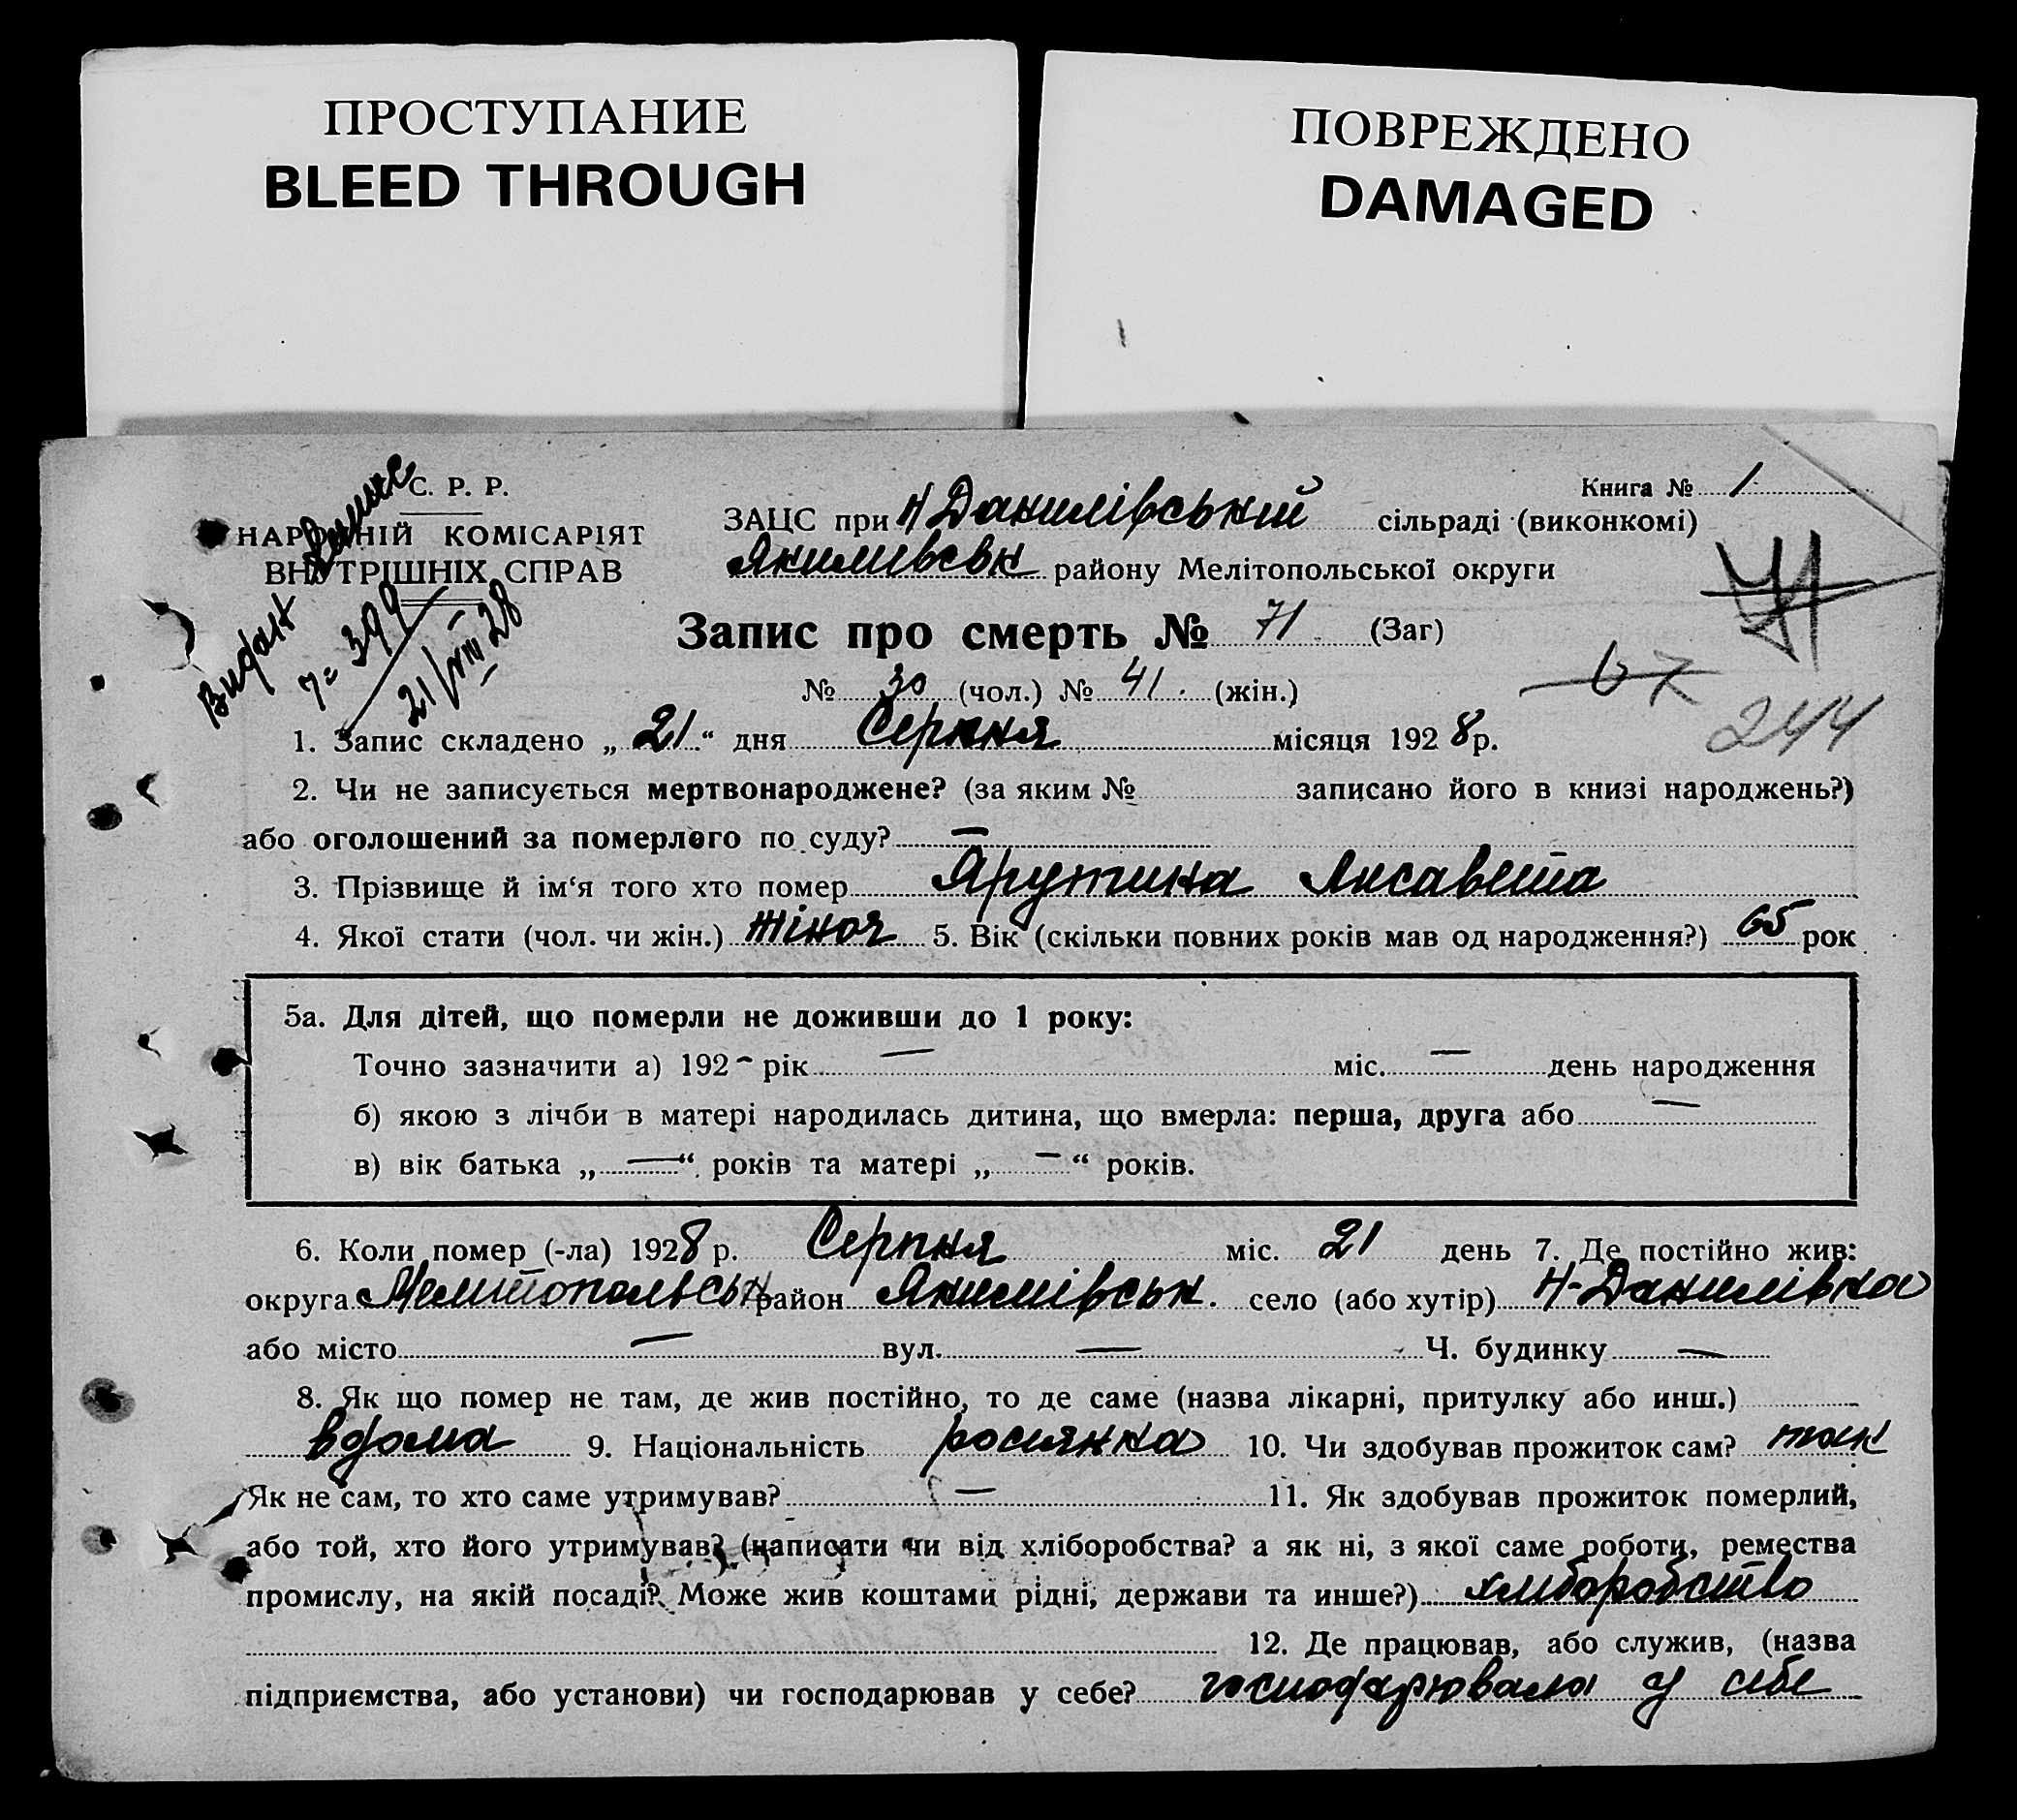 ПРОСТУПАНИЕ
BLEED THROUGH
ПОВРЕЖДЕНО
DAMAGED
С. Р. Р.
НАРОДНІЙ КОМІСАРІЯТ
ВНУТРІШНІХ СПРАВ
Видант
7= 399
21/VIII 28
Книга № 1
ЗАЦС при Н Данилівській сільраді (виконкомі)
Якимівськ району Мелітопольської округи
Запис про смерть № 71 (Заг)
№ 30 (чол.) № 41. (жін.)
67
244
1. Запис складено „ 21 “ дня Серпня місяця 1928 р.
2. Чи не записується мертвонароджене? (за яким № записано його в книзі народжень?)
або оголошений за померлого по суду? —
3. Прізвище й ім‘я того хто помер Ярутина Лисавета
4. Якої стати (чол. чи жін.) жіноч 5. Вік (скільки повних років мав од народження?) 65 рок
5а. Для дітей, що померли не доживши до 1 року:
Точно зазначити а) 192 - рік — міс. — день народження
б) якою з лічби в матері народилась дитина, що вмерла: перша, друга або —
в) вік батька „ — “ років та матері „ — “ років.
6. Коли помер (-ла) 1928 р. Серпня міс. 21 день 7. Де постійно жив:
округа Мелитопольськ район Якимівськ. село (або хутір) Н-Данилівка
або місто — вул. — Ч. будинку —
8. Як що помер не там, де жив постійно, то де саме (назва лікарні, притулку або инш.)
вдома 9. Національність росиянка 10. Чи здобував прожиток сам? так
Як не сам, то хто саме утримував? — 11. Як здобував прожиток померлий,
або той, хто його утримував? (написати чи від хліборобства? а як ні, з якої саме роботи, ремества
промислу, на якій посаді? Може жив коштами рідні, держави та инше?) хлиборобство
12. Де працював, або служив, (назва
підприємства, або установи) чи господарював у себе? господарювала у себе